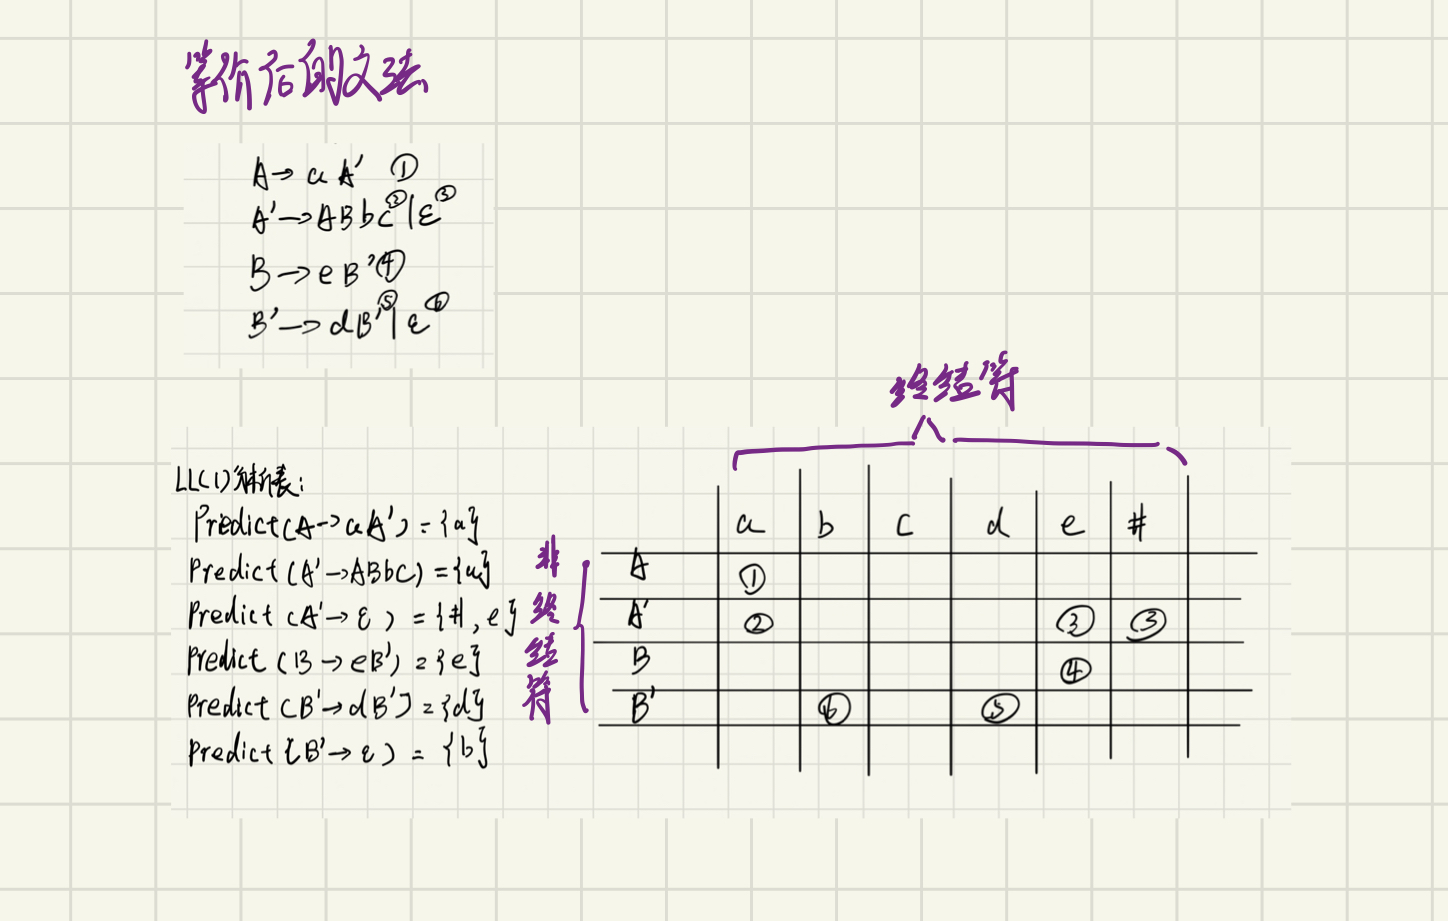 等价后的文法
A→aA' ①
A'→ABbc②|ε③
B→eB'④
B'→dB'⑤|ε⑥
终结符
LL(1)分析表:
Predict(A→aA')={a}
Predict(A'→ABbC)={a}
Predict(A'→ε)={#,e}
Predict(B→eB')={e}
Predict(B'→dB')={d}
Predict(B'→ε)={b}
非终结符
a b c d e #
A ①
A' ② ③ ③
B ④
B' ⑥ ⑤